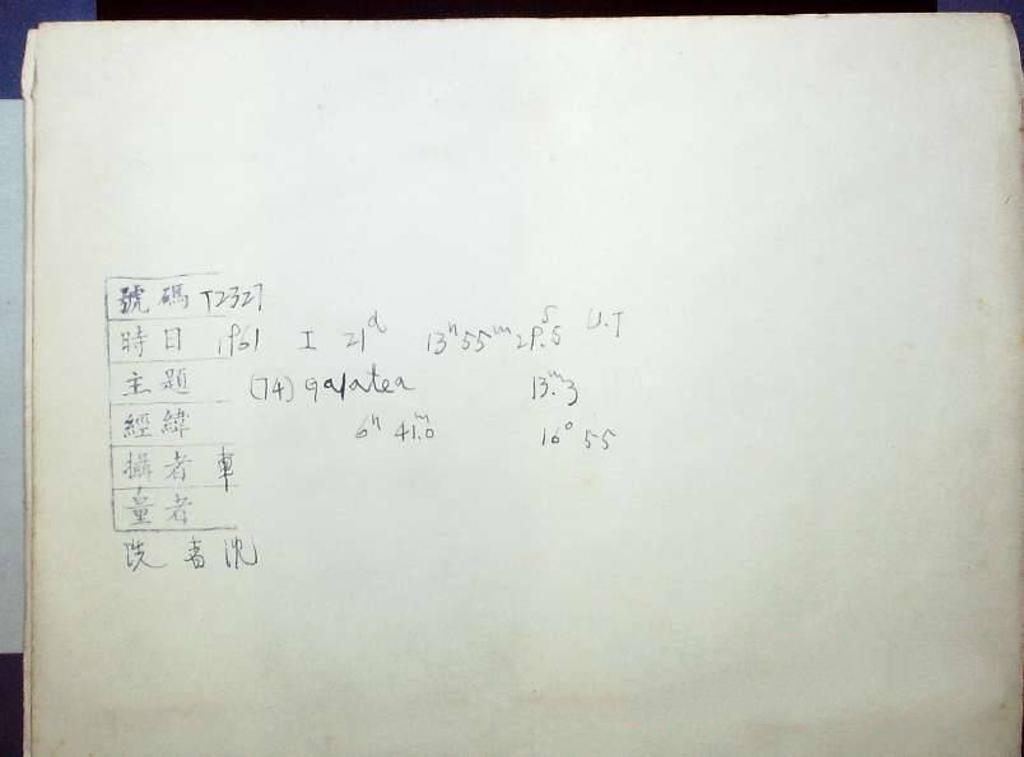 號碼 T2327
時日 1961 I 21ᵈ 13ʰ55ᵐ29.5ˢ U.T
主題 (74) galatea 13.ᵐ3
經緯 6ʰ 41.ᵐ0 16° 55
攝者 車
量者
洗者 沈